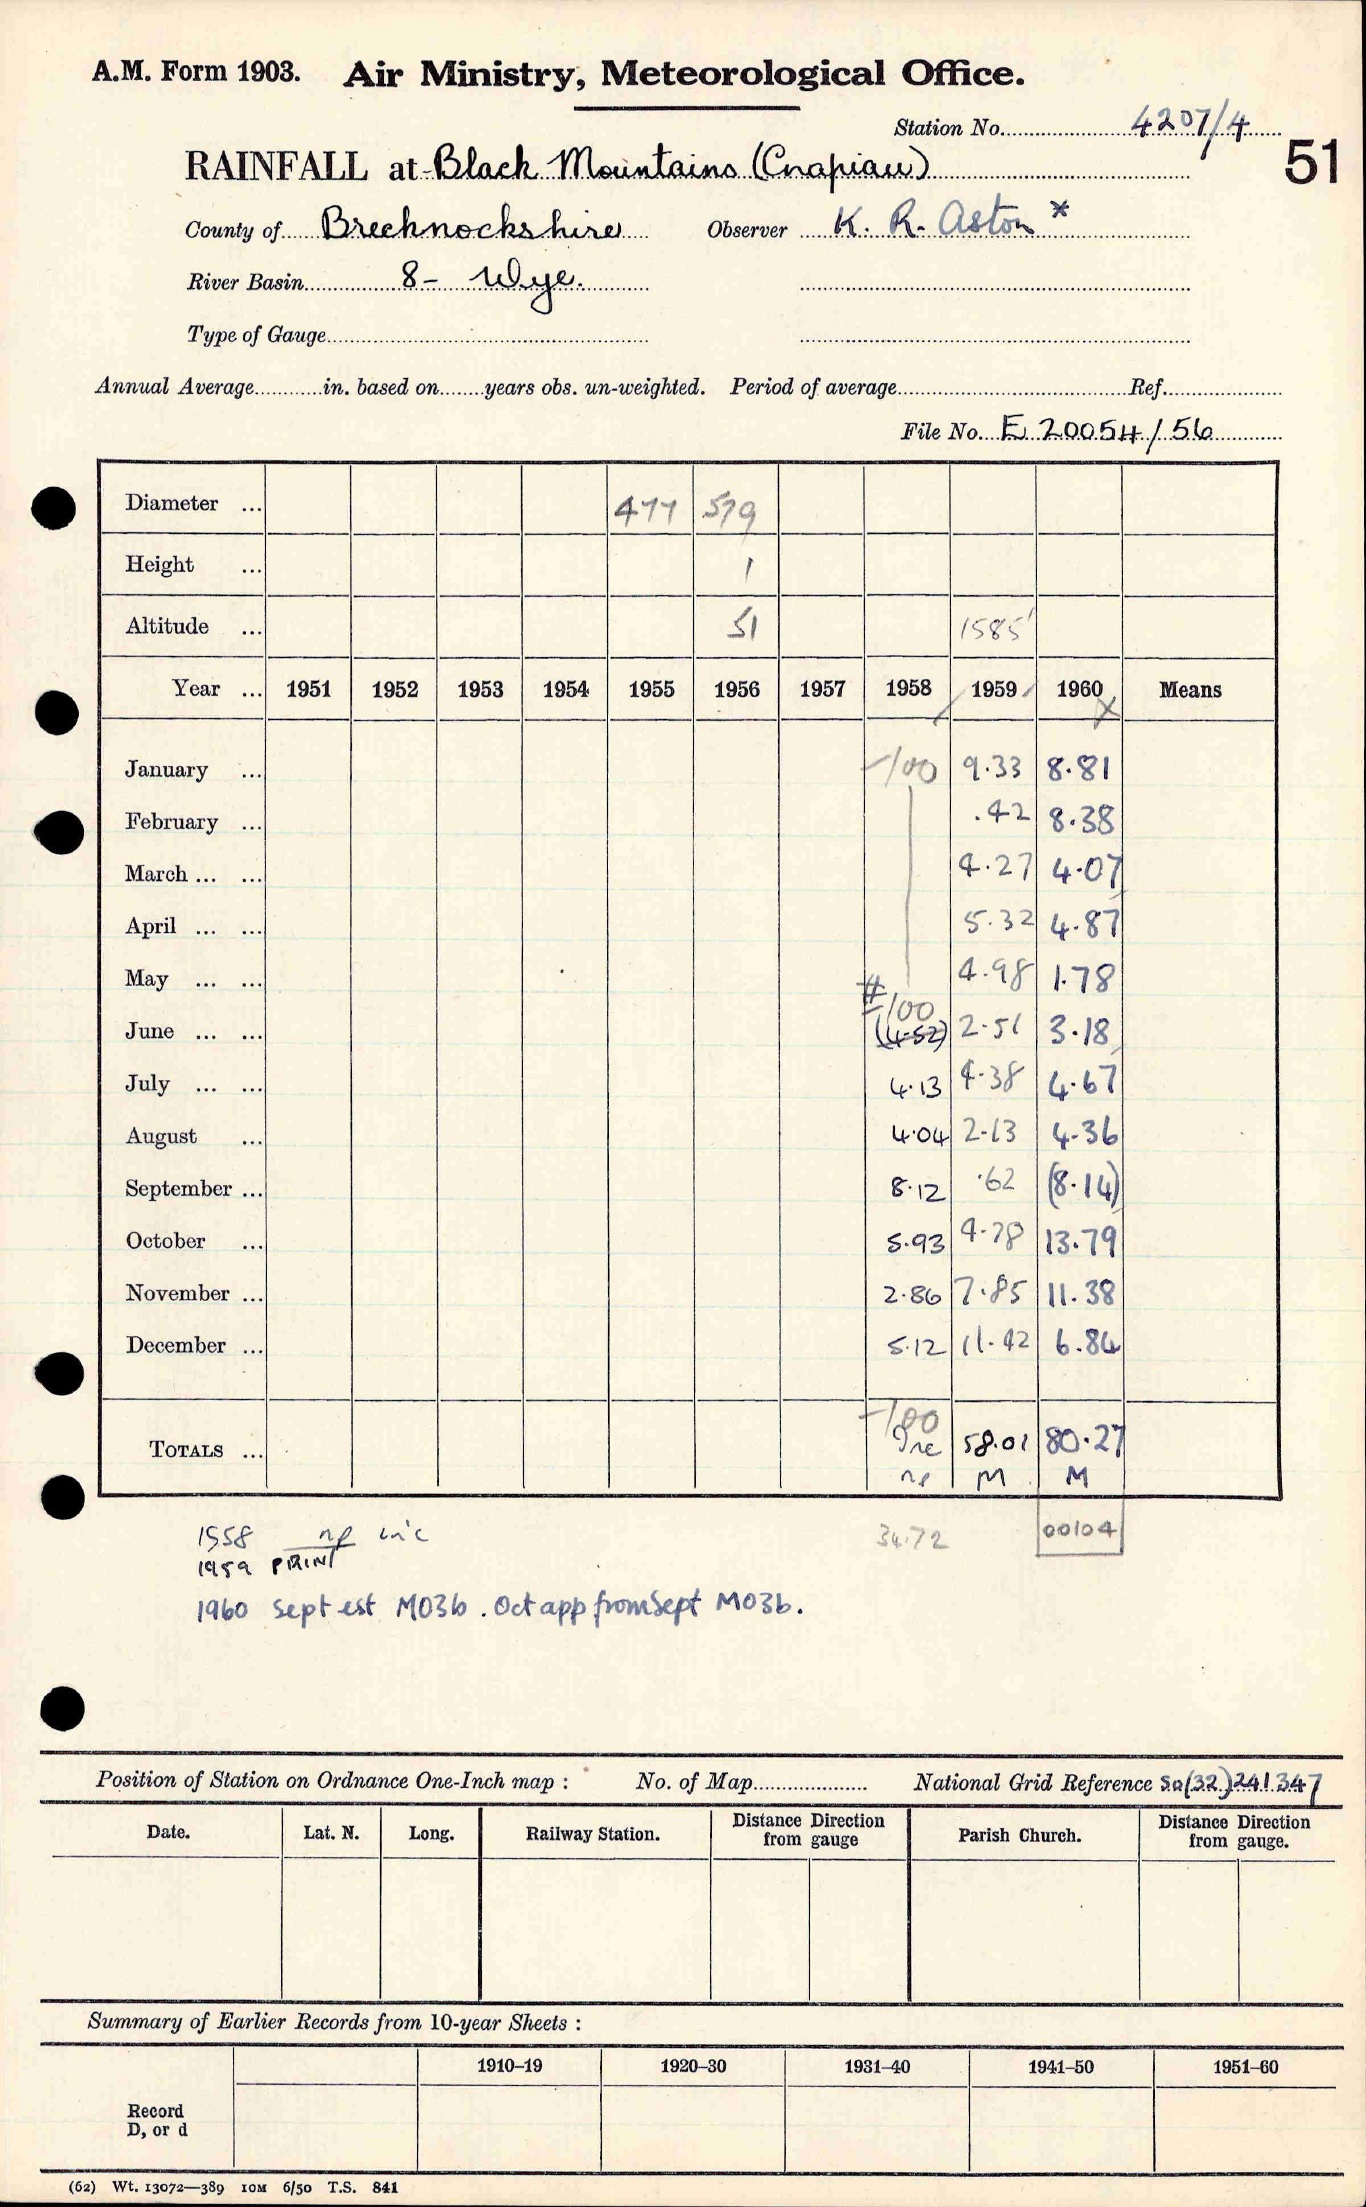 A.M. Form 1903. Air Ministry, Meteorological Office.
Station No. 4207/4
51
RAINFALL at Black Mountains (Cnapiau)
County of Brecknockshire Observer K. R. Aston *
River Basin 8- Wye.
Type of Gauge
Annual Average in. based on years obs. un-weighted. Period of average Ref.
File No. E 20054/56
Diameter ... 477 579
Height ... 1
Altitude ... 51 1585'
Year ... 1951 1952 1953 1954 1955 1956 1957 1958 1959 1960 Means
X
January ... -100 9.33 8.81
February ... .42 8.38
March ... ... 4.27 4.07
April ... ... 5.32 4.87
May ... ... 4.98 1.78
# -100
June ... ... (4.52) 2.51 3.18
July ... ... 4.13 4.38 4.67
August ... 4.04 2.13 4.36
September ... 8.12 .62 (8.14)
October ... 5.93 4.78 13.79
November ... 2.86 7.85 11.38
December ... 5.12 11.42 6.84
-100
TOTALS ... Inc 58.01 80.27
np M M
1958 np inc 34.72 00104
1959 PRINT
1960 Sept est M03b. Oct app from Sept M03b.
Position of Station on Ordnance One-Inch map : No. of Map National Grid Reference SO(32)241347
Date. Lat. N. Long. Railway Station. Distance Direction from gauge Parish Church. Distance Direction from gauge.
Summary of Earlier Records from 10-year Sheets :
1910–19 1920–30 1931–40 1941–50 1951–60
Record
D, or d
(62) Wt. 13072—389 10M 6/50 T.S. 841